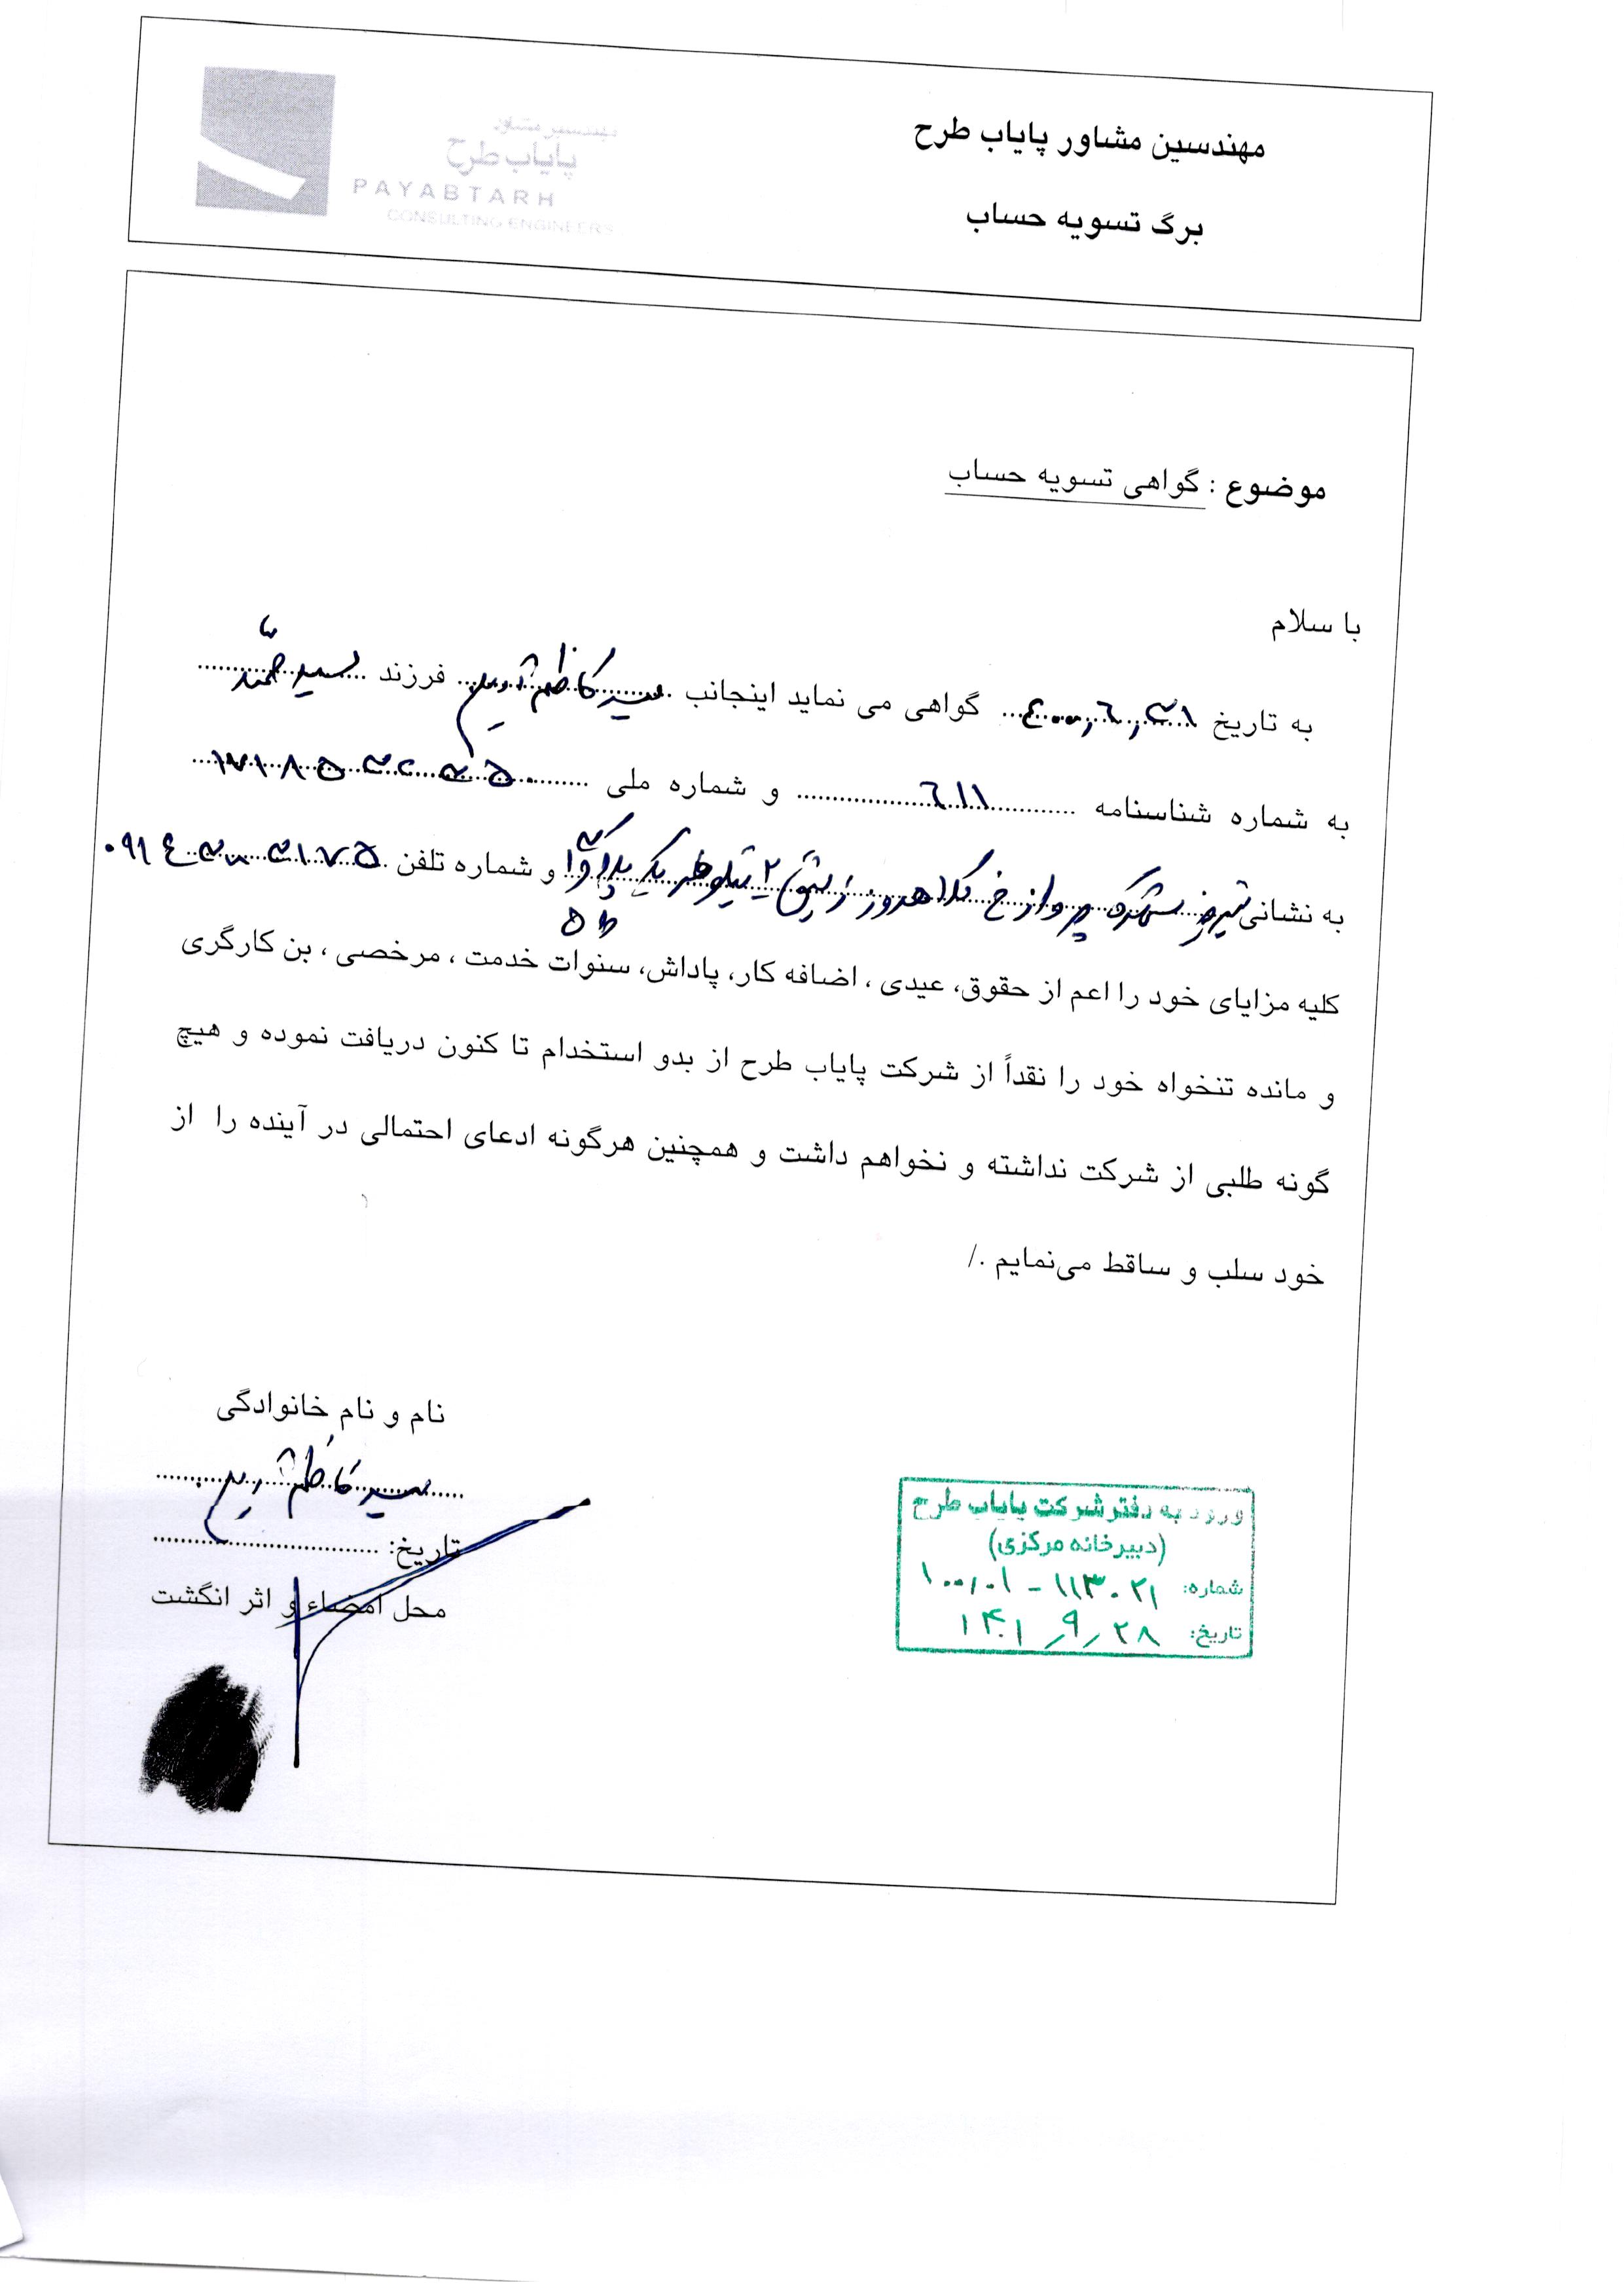 مهندسین مشاور پایاب طرح
برگ تسویه حساب
مهندسین مشاور
پایاب طرح
PAYABTARH
CONSULTING ENGINEERS
موضوع : گواهی تسویه حساب
با سلام
به تاریخ ۴۰۰٫۶٫۳۱ گواهی می نماید اینجانب سید کاظم فرزند سید
به شماره شناسنامه ۶۱۱ و شماره ملی
به نشانی تبریز پرواز خ یک و شماره تلفن
کلیه مزایای خود را اعم از حقوق، عیدی ، اضافه کار، پاداش، سنوات خدمت ، مرخصی ، بن کارگری
و مانده تنخواه خود را نقداً از شرکت پایاب طرح از بدو استخدام تا کنون دریافت نموده و هیچ
گونه طلبی از شرکت نداشته و نخواهم داشت و همچنین هرگونه ادعای احتمالی در آینده را از
خود سلب و ساقط می‌نمایم ./
نام و نام خانوادگی
سید کاظم
تاریخ:
محل امضاء و اثر انگشت
ورود به دفتر شرکت پایاب طرح
(دبیرخانه مرکزی)
شماره: ۱۰۰٫۰۱ - ۱۱۳۰۲۱
تاریخ: ۱۴۰۱٫۹٫۲۸